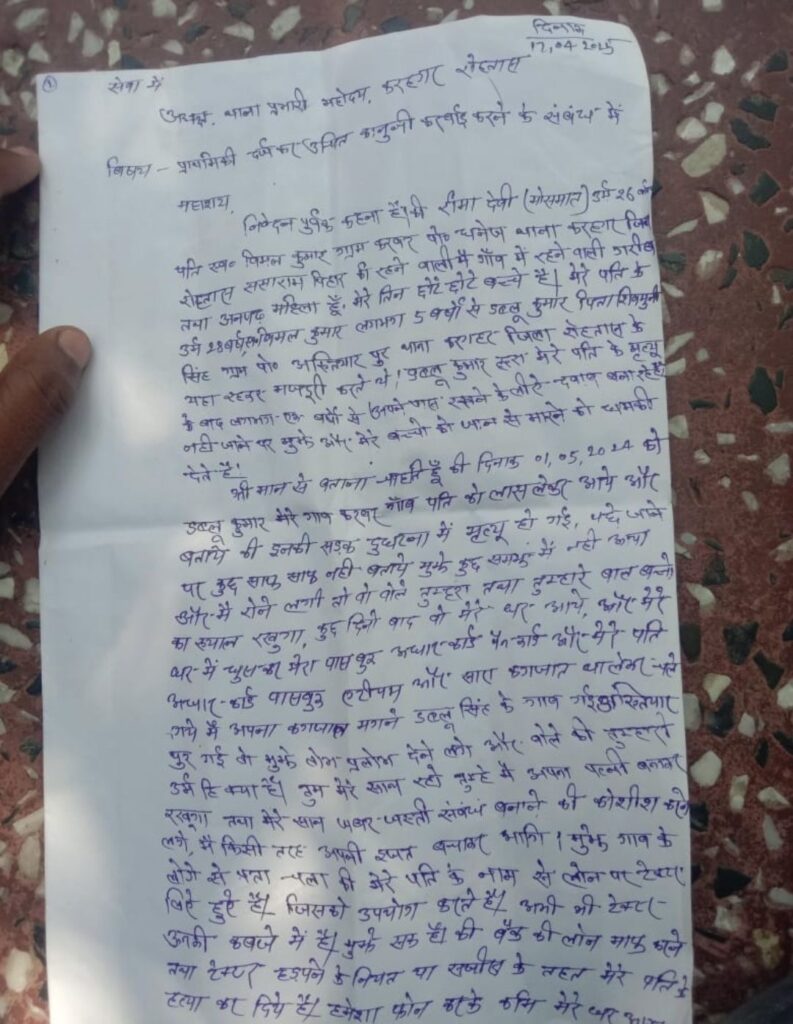 दिनांक
17,04,2025
①
सेवा में
अध्यक्ष, थाना प्रभारी महोदय, करहगर रोहतास
विषय - प्राथमिकी दर्ज कर उचित कानुनी करवाई करने के संबंध में
महाशय,
निवेदन पुर्वक कहना है। की रीमा देवी (मोसमात) उर्म 26 वर्ष
पति स्व० विमल कुमार ग्राम करवर पो० थाना करहगर जिला
रोहतास ससाराम विहार की रहने वाली मै गाँव में रहने वाली गरीब
तथा अनपढ़ महिला हूँ. मेरे तिन छोटे छोटे बच्चे है। मेरे पति के
उर्म 28 वर्ष विमल कुमार लगभग 5 वर्षो से डबलू कुमार पिता शिवमुनी
सिंह ग्राम पो० थाना करहर जिला रोहतास के
यहा रहकर मजदुरी करते थे। डबलू कुमार मेरे पति के मृत्यू
के बाद लगभग एक वर्षो से अपने पास रखने के लीऐ दवाव बना रहे है
नही जाने पर मुझे और मेरे बच्चो को जान से मारने की धमकी
देते है।
श्री मान से बताना चाहती हूँ की दिनाक 01,05,2024 को
डबलू कुमार मेरे गाव करवर गाँव पति की लास लेकर आये और
बताये की इनकी सड़क दुघटना में मृत्यू हो गई, पुछे जाने
पर कुछ साफ साफ नही बताये मुझे कुछ समझ में नही आया
और मै रोने लगी तो वो बोले तुम्हरा तथा तुम्हारे बाल बच्चो
का ख्याल रखुगा, कुछ दिनो बाद वो मेरे घर आये, और मेरे
घर में घुसकर मेरा पासबुर अधार कार्ड पैन कार्ड और मेरे पति
अधार कार्ड पासबुर एटीएम और सारा कगजात था लेकर चले
गये मै अपना कगजात मगने डबलू सिंह के गाव गई
पुर गई वो मुझे लोग प्रलोभ देने लगे और बोले की तुम्हारी
उर्म हि क्या है। तुम मेरे साथ रहो तुम्हे मै अपना पत्नी बनाकर
रखूगा तथा मेरे साथ जबर जस्ती संबंध बनाने की कोशीश करने
लगे, मै किसी तरह अपनी इज्जत बचाकर भागि। मुझे गाव के
लोगो से पता चला की मेरे पति के नाम से लोन पर टेक्टर
लिऐ हुऐ है। जिसको उपयोग करते है। अभी भी टेक्टर
उनकी कबजे में है। मुझे सक है। की बैंक की लोन माफ करने
तथा टेक्टर हड़पने के नियत या साजीस के तहत मेरे पति के
हत्या कर दिये है। हमेशा फोन करके कभि मेरे घर